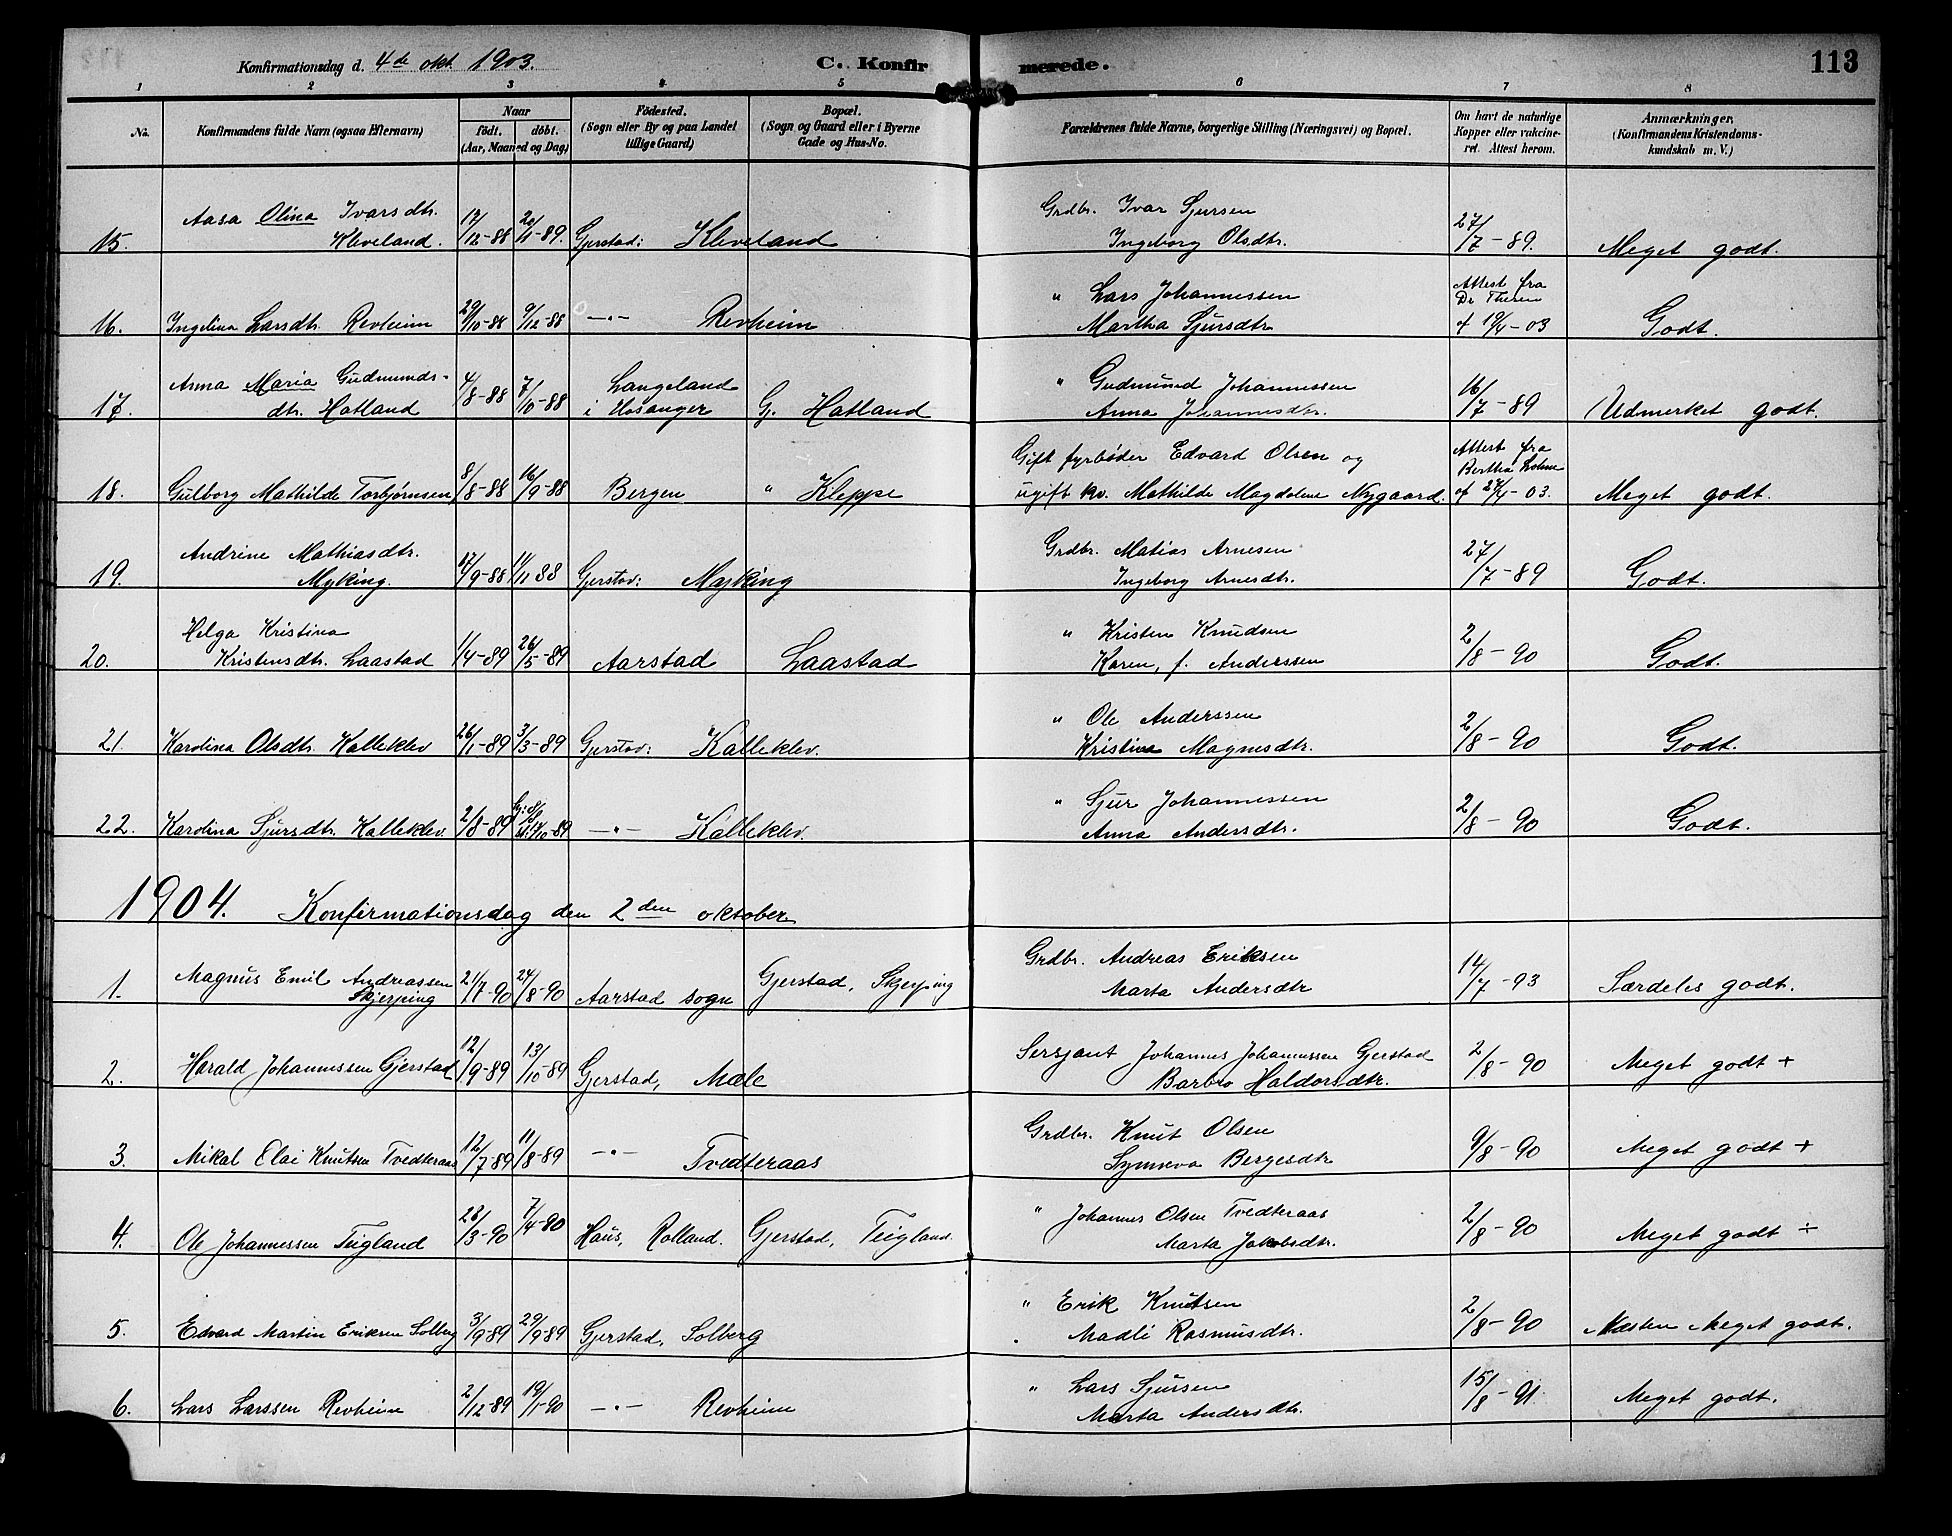 Konfirmationsdag d. 4de okt. 1903. C. Konfirmerede. 113
1 2 3 4 5 6 7 8
No. Konfirmandens fulde Navn (ogsaa Efternavn) Naar født. døbt. (Aar, Maaned og Dag) Födested. (Sogn eller By og paa Landet tillige Gaard) Bopæl. (Sogn og Gaard eller i Byerne Gade og Hus-No. Forældrenes fulde Navne, borgerlige Stilling (Næringsvei) og Bopæl. Om havt de naturlige Kopper eller vakcineret. Attest herom. Anmærkninger, (Konfirmandens Kristendomskundskab m. V.)
Aasa Olina Ivarsdtr. Grdbr. Ivar Sjursen
15. Kleveland. /12-88 20/1-89. Gjerstad: Kleveland Ingeborg Olsdtr. 27/7-89. Meget godt.
" Lars Johannessen Attest fra Dr.
16. Ingelina Larsdtr. Revheim 29/10-88 9/12-88 -"- Revheim Martha Sjursdtr -03 Godt.
Anna Maria Gudmunds- Langeland " Gudmund Johannessen
17. dtr. Hatland 4/8-88 7/10-88 i Hosanger G. Hatland Anna Johannesdtr. 16/7-89 Udmerket godt.
Gift fyrbøder Edvard Olsen og Attest fra Bertha
18. Gulborg Mathilde Torbjørnsen 8/8-88 16/9-88 Bergen " Kleppe ugift kv. Mathilde Magdalene Nygaard. -03. Meget godt.
Andrine Mathiasdtr. Grdbr. Matias Arnesen
19. Myking. 17/9-88 11/11 88 Gjerstad: Myking Ingeborg Arnesdtr. 27/7-89 Godt.
Helga Kristina " Kristen Knudsen
20. Kristensdtr. Laastad 1/4-89 26/5-89 Aarstad Laastad Karen, f. Anderssen 2/8-90 Godt.
" Ole Anderssen
21. Karolina Olsdtr. Kalleklev 26/1-89 3/3-89 Gjerstad: Kalleklev. Kristina Magnesdtr. 2/8-90 Godt.
" Sjur Johannessen
22. Karolina Sjursdtr. Kalleklev. 2/8-89 -89 -"- Kalleklev. Anna Andersdtr. 2/8-90 Godt.
1904. Konfirmationsdag den 2den oktober.
Magnus Emil Andreassen Grdbr. Andreas Eriksen
1. Skjerping 21/7-90 24/8-90 Aarstad sogn Gjerstad, Skjerping Marta Andersdtr 14/7-93 Særdeles godt.
Sersjant Johannes Johannessen Gjerstad
2. Harald Johannessen Gjerstad 12/9-89 13/10-89 Gjerstad, Mæle Barbro Haldorsdtr. 2/8-90 Meget godt +
Grdbr. Knut Olsen
3. Mikal Olai Knutsen Tvedteraas 12/7-89 11/8-89 -"- Tvedteraas Synneva Bergesdtr 9/8-90 Meget godt +
" Johannes Olsen Tvedteraas
4. Ole Johannessen Teigland 28/3-90 7/4-80 Haus, Rolland. Gjerstad, Teigland. Marta Jakobsdtr. 2/8-90 Meget godt ÷
" Erik Knutsen
5. Edvard Martin Eriksen Solberg 3/9-89 29/9-89 Gjerstad, Solberg Madli Rasmusdtr. 2/8-90 Næsten Meget godt.
" Lars Sjursen
6. Lars Larssen Revheim 2/12-89 19/1-90 -"- Revheim Marta Andersdtr. 15/8-91. Meget godt.